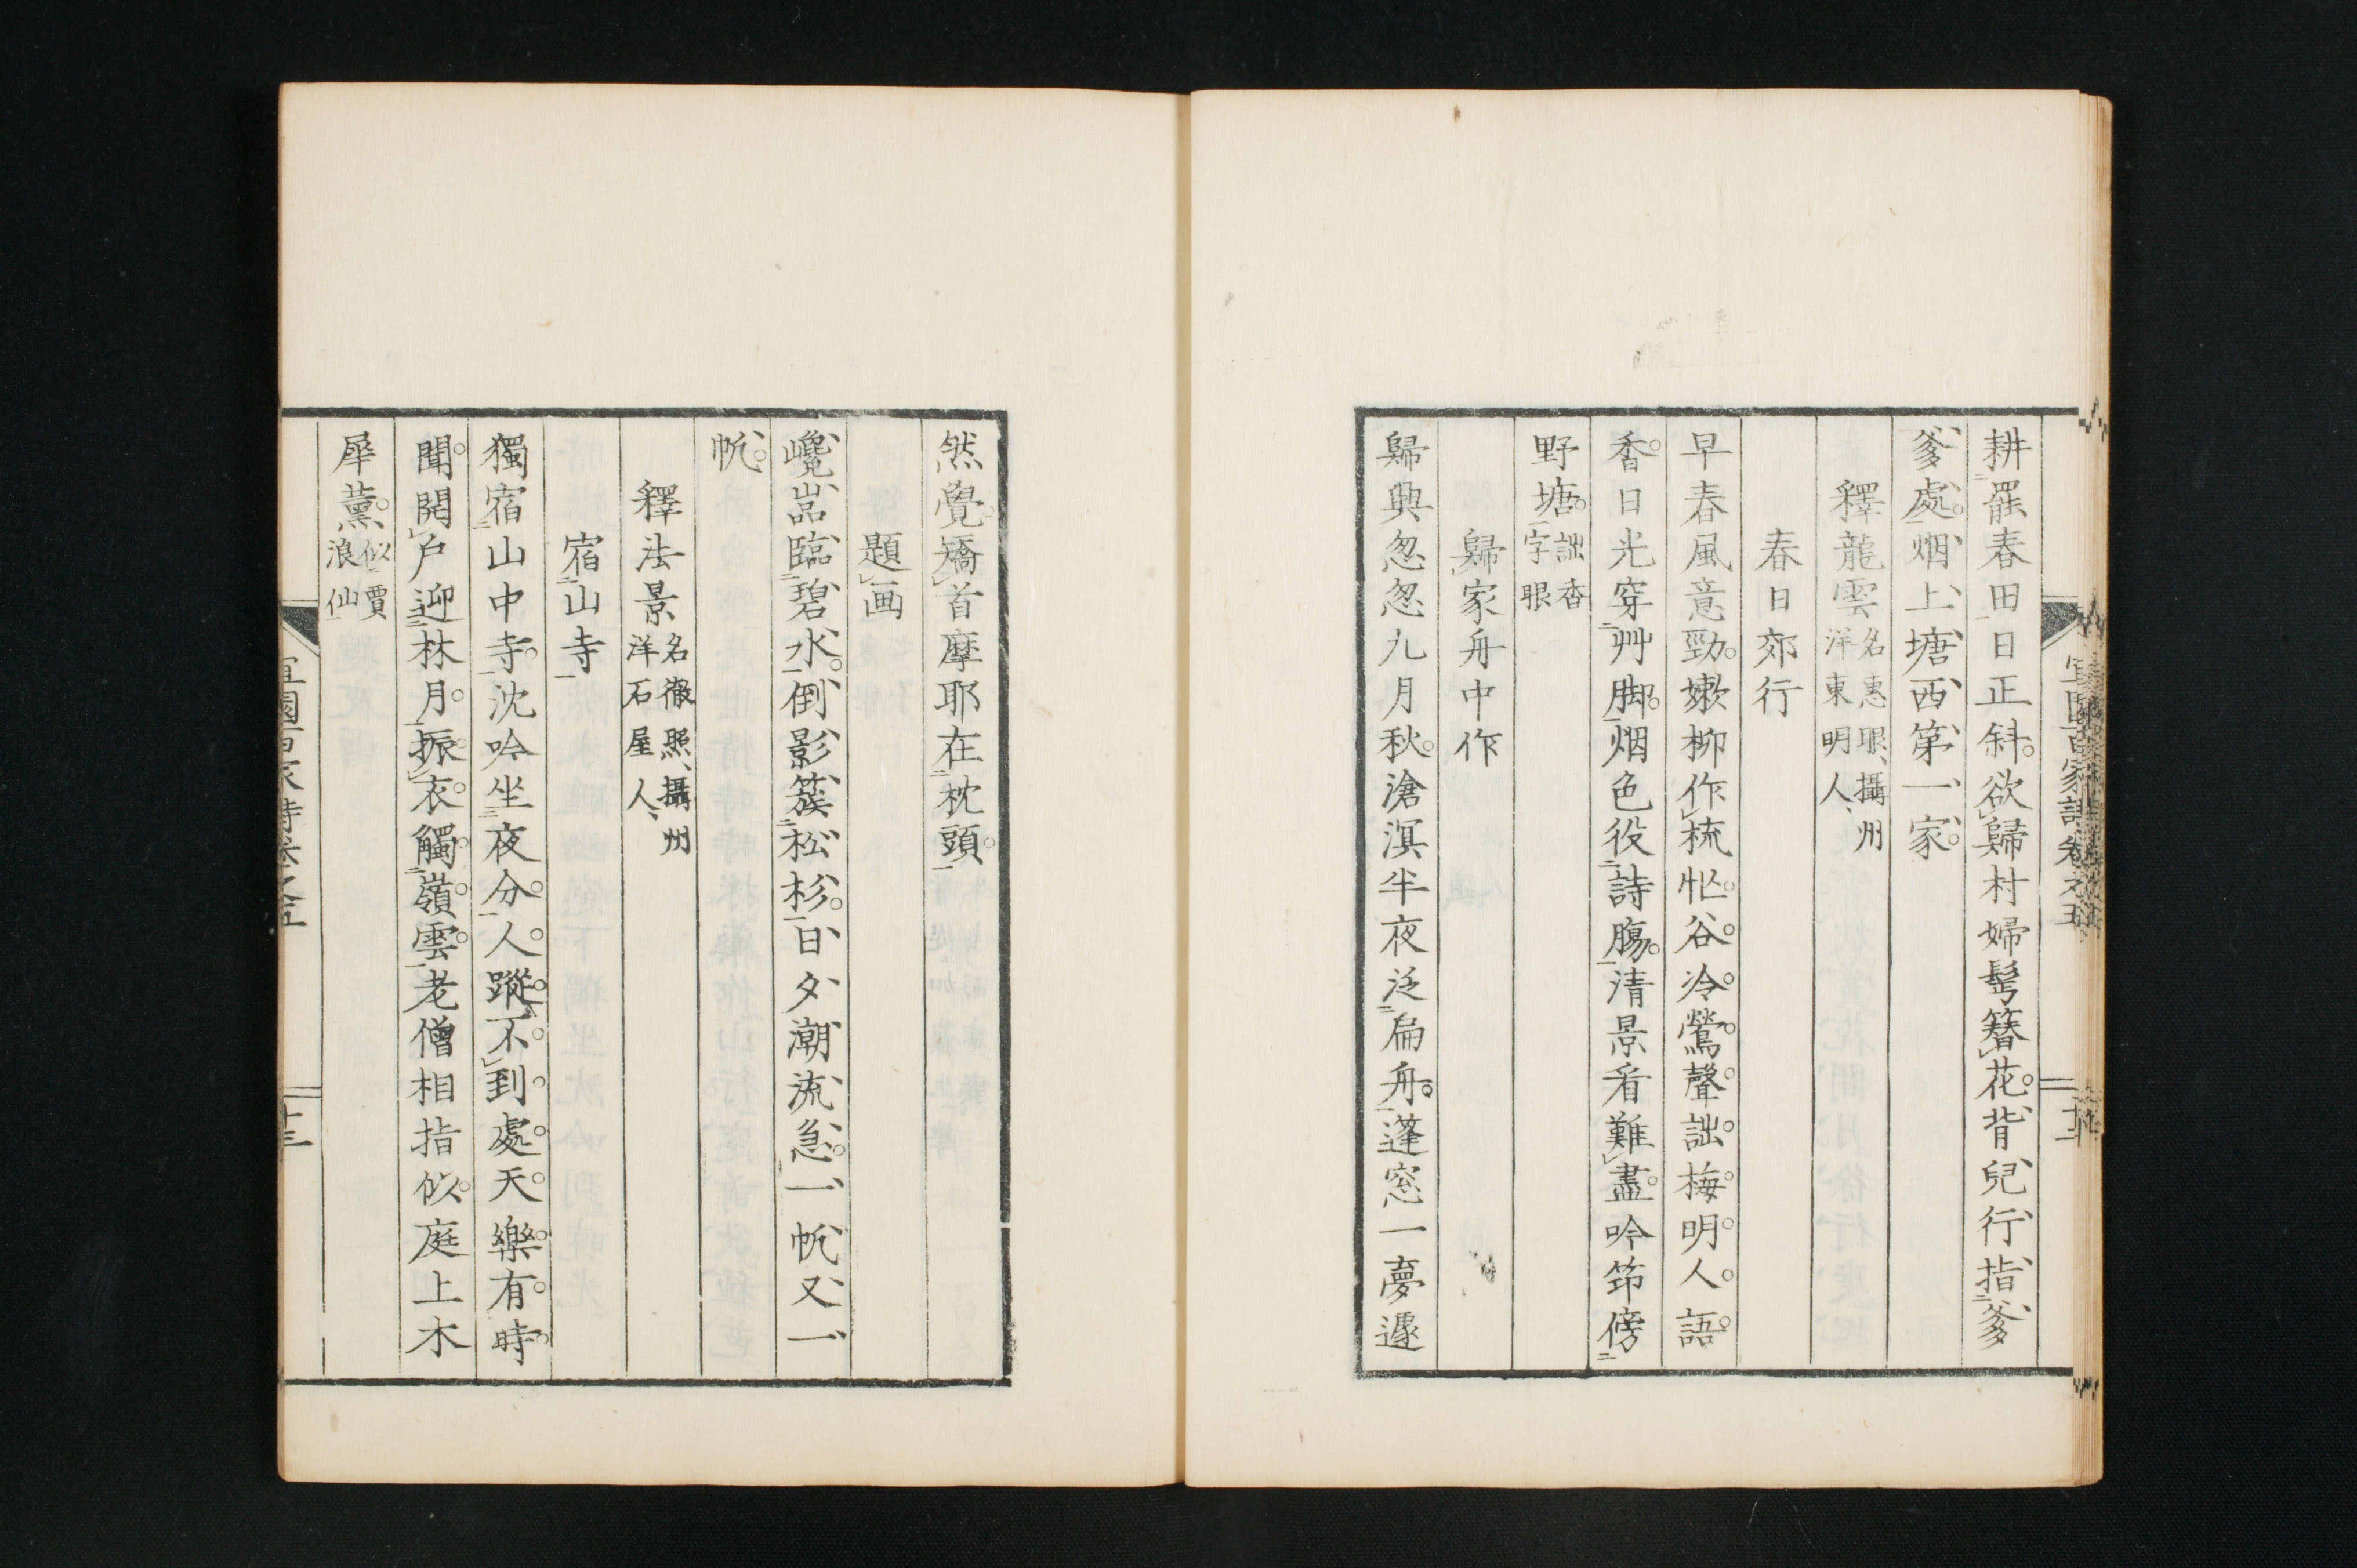 耕罷春田日正斜欲歸村婦髩簪花背兒行指爹
爹處烟上塘西第一家
釋龍雲名惠眼攝州洋東明人
春日郊行
早春風意勁嫰柳作梳怭谷冷鶯聲詘梅明人語
香日光穿艸脚烟色役詩膓清景看難盡吟筇傍
野塘詘香字眼
歸家舟中作
歸興怱怱九月秋滄溟半夜泛扁舟蓬窓一夢遽
宜園百家詩卷之五
十二
然覺矯首摩耶在枕頭
題画
巉嵓臨碧水倒影簇松杉日夕潮流急一帆又一
帆
釋法景名徹照攝州洋石屋人
宿山寺
獨宿山中寺沈吟坐夜分人蹤不到處天樂有時
聞開戶迎林月振衣觸嶺雲老僧相指似庭上木
犀薰似賈浪仙
宜園百家詩卷之五
十三